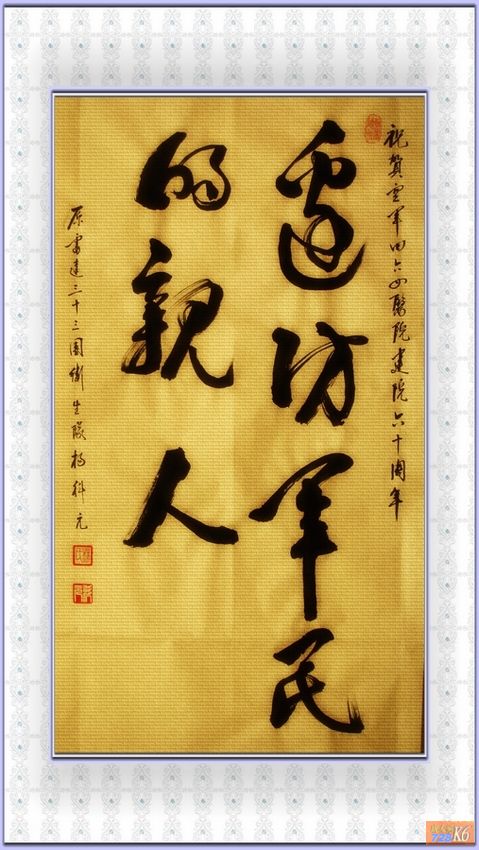 祝賀空军四六醫院建院六十周年
邊防军民
的親人
原雷達三十三團衛生隊杨科元
728
K6